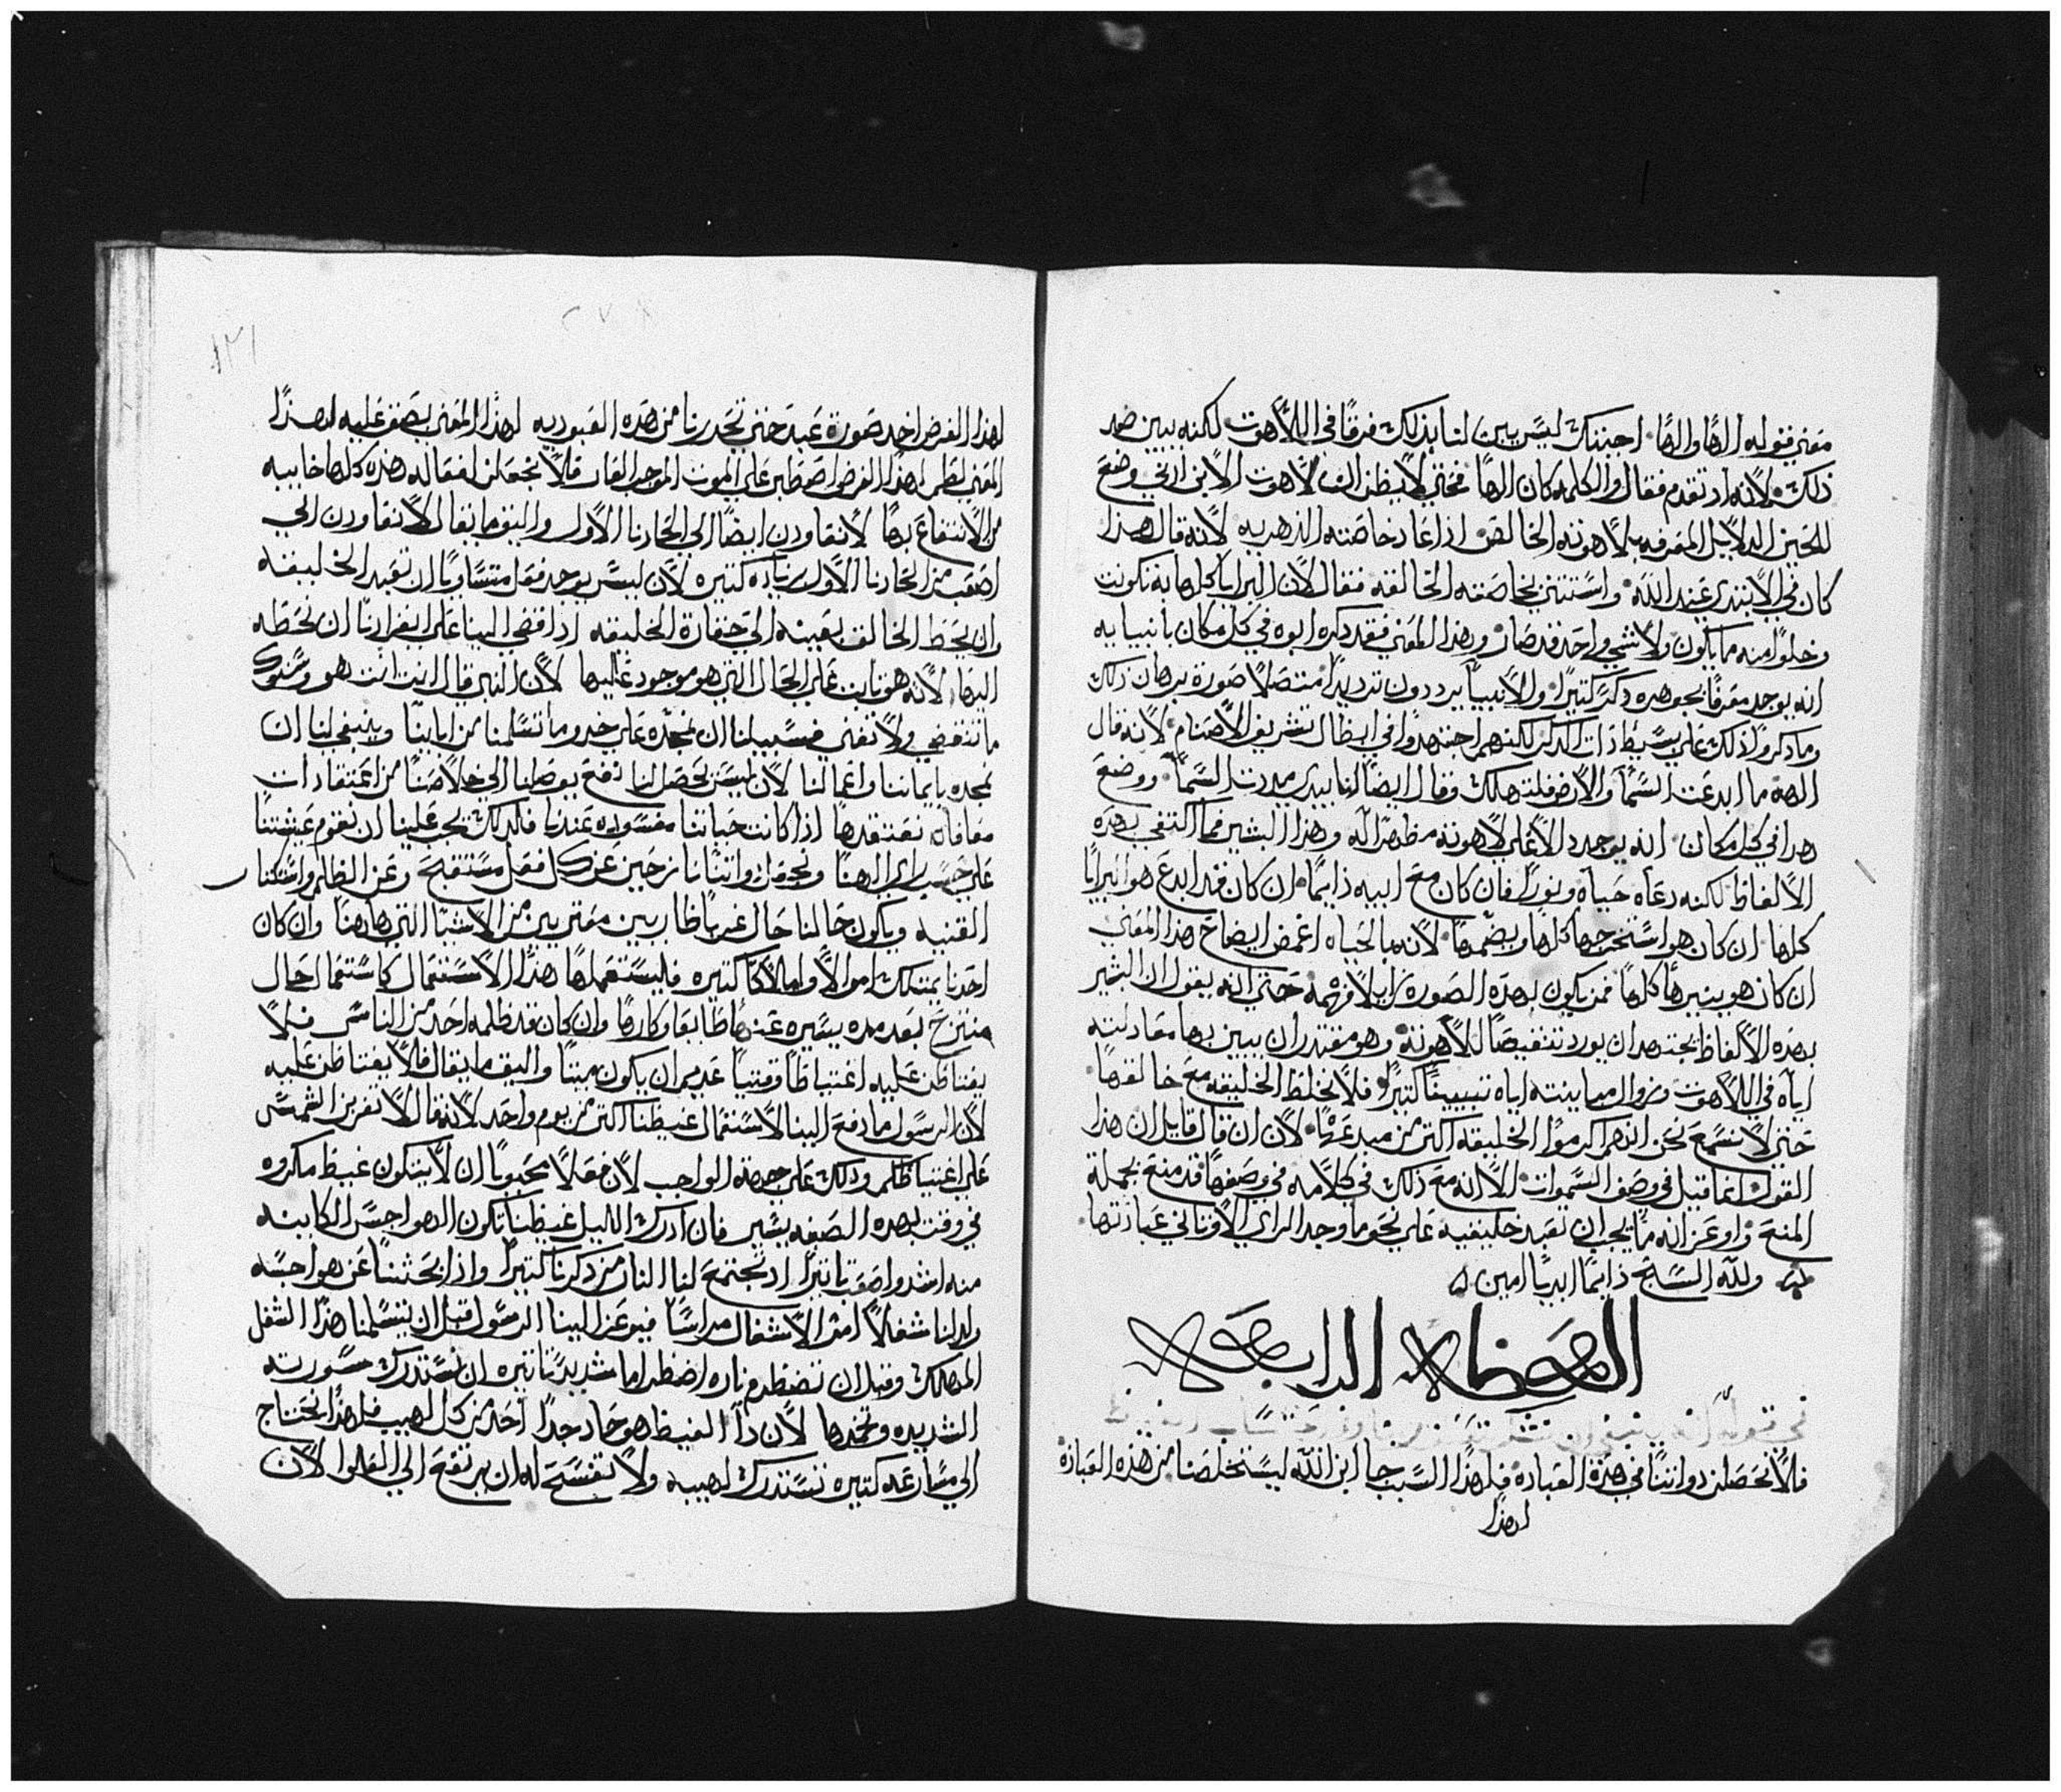 معني قوله الهًا والهًا اجبتك ليس يبين لنا بذلك فرقًا في اللاهوت لكنه يبين ضد
ذلك لانه اذ تقدم فقال والكلمه كان الهًا فحتي لا يظن ان لاهوت الابن ادني وضع
للحين الدلايل المعرفه بلاهوته الخالص اذ اعاد خاصته الدهريه لانه قال هذا
كان في الابتدي عند الله واستثني بخاصته الخالقه فقال لان البرايا كلها به تكونت
وخلوًا منه مما تكون ولا شي واحد قد صار وبهذا المعني فقد ذكره ابوه في كل مكان بانبيايه
انه يوجد معرفًا بجوهره ذكرًا كثيرًا والانبيا يرددون ترديدًا متصلًا صورة برهان ذلك
وما ذكروا ذلك علي بسيط ذات الذكر لكنهم اجتهدوا في ابطال تشريف الاصنام لانه قال
الهة ما ابدعت السما والارض فلتهلك وقال ايضًا انا بيدي مددت السما ووضع
هذا في كل مكان انه يوجد دالًا علي لاهوته مظهرًا له وهذا البشير فما اكتفي بهذه
الالفاظ لكنه دعاه حياه ونورًا فان كان مع ابيه دايمًا ان كان قد ابدع هو البرايا
كلها ان كان هو استخرجها كلها ويضمها لانه بالحياه اغمض ايضاح هذا المعني
ان كان هو ينيرها كلها فمن يكون بهذه الصورة زايلًا فهمه حتي انه يقول ان البشير
بهذه الالفاظ يجتهد ان يورد تنقيصًا للاهوته وهو مقتدر ان يبين بها معادلته
اياه في اللاهوت وزوال مباينته اياه تبيينًا كثيرًا فلا نخلط الخليقه مع خالقها
حتي لا نسمع نحن انهم اكرموا الخليقه اكثر من مبدعها لان ان قال قايل ان هذا
القول انما قيل في وصف السموات الا انه مع ذلك في كلامه في وصفها قد منع بجملة
المنع واوعز انه ما يجب ان تعبد خليقيه علي نحو ما وجد الراي الاوثاني عبادتها
ولله السبح دايمًا ابديًا امين
العظه الرابعه
فلا نحصلن ذواتنا في هذه العباده فلهذا السبب جا ابن الله ليستخلصنا من هذه العبادة
لهذا
لهذا الغرض اخد صورة عبد حتي تحدرنا من هذه العبوديه لهذا المعني بصق عليه لهذا
المعني لطم لهذا الغرض اصطبر علي الموت الموجب العار فلا نجعلن افعاله هذه كلها خاييه
من الانتفاع بها لا نعاودن ايضًا الي الحادنا الاول واليق ما يقال لا نعاودن الي
اصعب من الحادنا الاول زياده كثيره لان ليس يوجد فعل متساويًا ان تعبد الخليقه
وان يحط الخالف بعينه الي حقارة الخليقه اذ افضي الينا علي انفرادنا ان نحطه
اليها لانه هو ثابت علي الحال التي هو موجود عليها لان النبي قال انت انت هو وسنوك
ما تنقضي ولا تفني فسبيلنا ان نمجده علي حدو ما تسلمنا من اباينا وينبغي لنا ان
نمجده بايماننا واعمالنا لان ليس يحصل لنا نفع يوصلنا الي خلاصنا من اعتقادات
معافاه نعتقدها اذا كانت حياتنا مفسوده عندنا فلذلك يجب علينا ان نقوم عيشتنا
علي حسب راي الهنا ونجعل ذواتنا نازحين عن كل فعل مستقبح وعن الظلم واشكنا
القنيه ويكون حالنا حال غربا ظاربين معتربين من الاشيا التي هاهنا وان كان
احدنا يمتلك اموالًا واملاكًا كثيره فليستعملها هذا الاستعمال كاستعمال حال
منتزح بعد مده يسيره عنها طايعًا وكارهًا وان كان قد ظلمه احد من الناس فلا
يغتاظن عليه اغتياظًا وقتيًا عديم ان يكون ميتًا واليق ما يقال فلا يغتاظن عليه
لان الرسول ما دفع الينا لاستعمال غيظنا اكثر من يوم واحد لانه قال لا تغربن الشمس
علي اغتياظكم وذلك علي جهة الواجب لان فعلًا محبوبًا ان لا يتكون غيظ مكروه
في وقت بهذه الصفه يسير فان ادرك الليل غيظنا تكون الهواجس الكاينه
منه اشد واصعب تاثيرًا اذ تجتمع لنا النار من ذكرنا كثيرًا واذا بحثنا عن هواجسه
ولد لنا شغلًا امر الاشغال مراسًا فيوعز الينا الرسول قبل ان يتسلمنا هذا الشغل
المهلك وقبل ان تضطرم ناره اضطرامًا شديدًا تاثيره ان نستدرك سورته
الشديده ونخمدها لان دا الغيظ هو حاد جدًا احد من كل لهيب فلهذا نحتاج
الي مسارعه كثيره نستدرك لهيبه ولا نفسح له ان يرتفع الي العلو لان